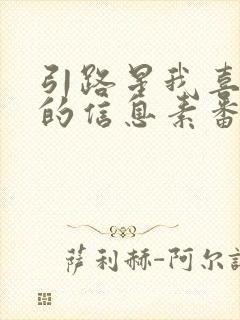 引路是我喜
的信息素番
萨利赫-阿尔